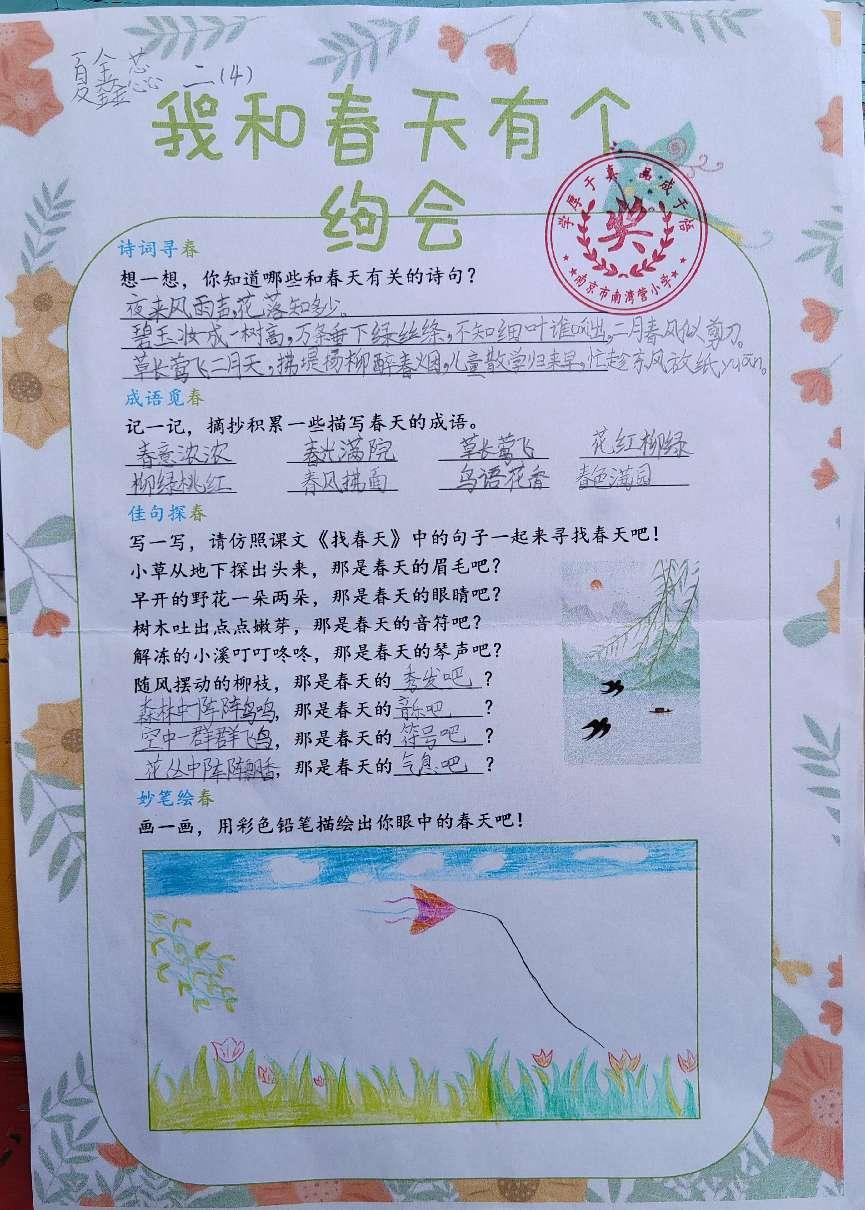 夏鑫蕊 二(4)
我和春天有个
约会
学真于真 品成于洁
奖
南京市南湾营小学
诗词寻春
想一想，你知道哪些和春天有关的诗句？
夜来风雨声，花落知多少。
碧玉妆成一树高，万条垂下绿丝绦，不知细叶谁裁出，二月春风似剪刀。
草长莺飞二月天，拂堤杨柳醉春烟，儿童散学归来早，忙趁东风放纸yuān。
成语觅春
记一记，摘抄积累一些描写春天的成语。
春意浓浓 春光满院 草长莺飞 花红柳绿
柳绿桃红 春风拂面 鸟语花香 春色满园
佳句探春
写一写，请仿照课文《找春天》中的句子一起来寻找春天吧！
小草从地下探出头来，那是春天的眉毛吧？
早开的野花一朵两朵，那是春天的眼睛吧？
树木吐出点点嫩芽，那是春天的音符吧？
解冻的小溪叮叮咚咚，那是春天的琴声吧？
随风摆动的柳枝，那是春天的秀发吧？
森林中阵阵鸟鸣，那是春天的音乐吧？
空中一群群飞鸟，那是春天的符号吧？
花丛中阵阵飘香，那是春天的气息吧？
妙笔绘春
画一画，用彩色铅笔描绘出你眼中的春天吧！